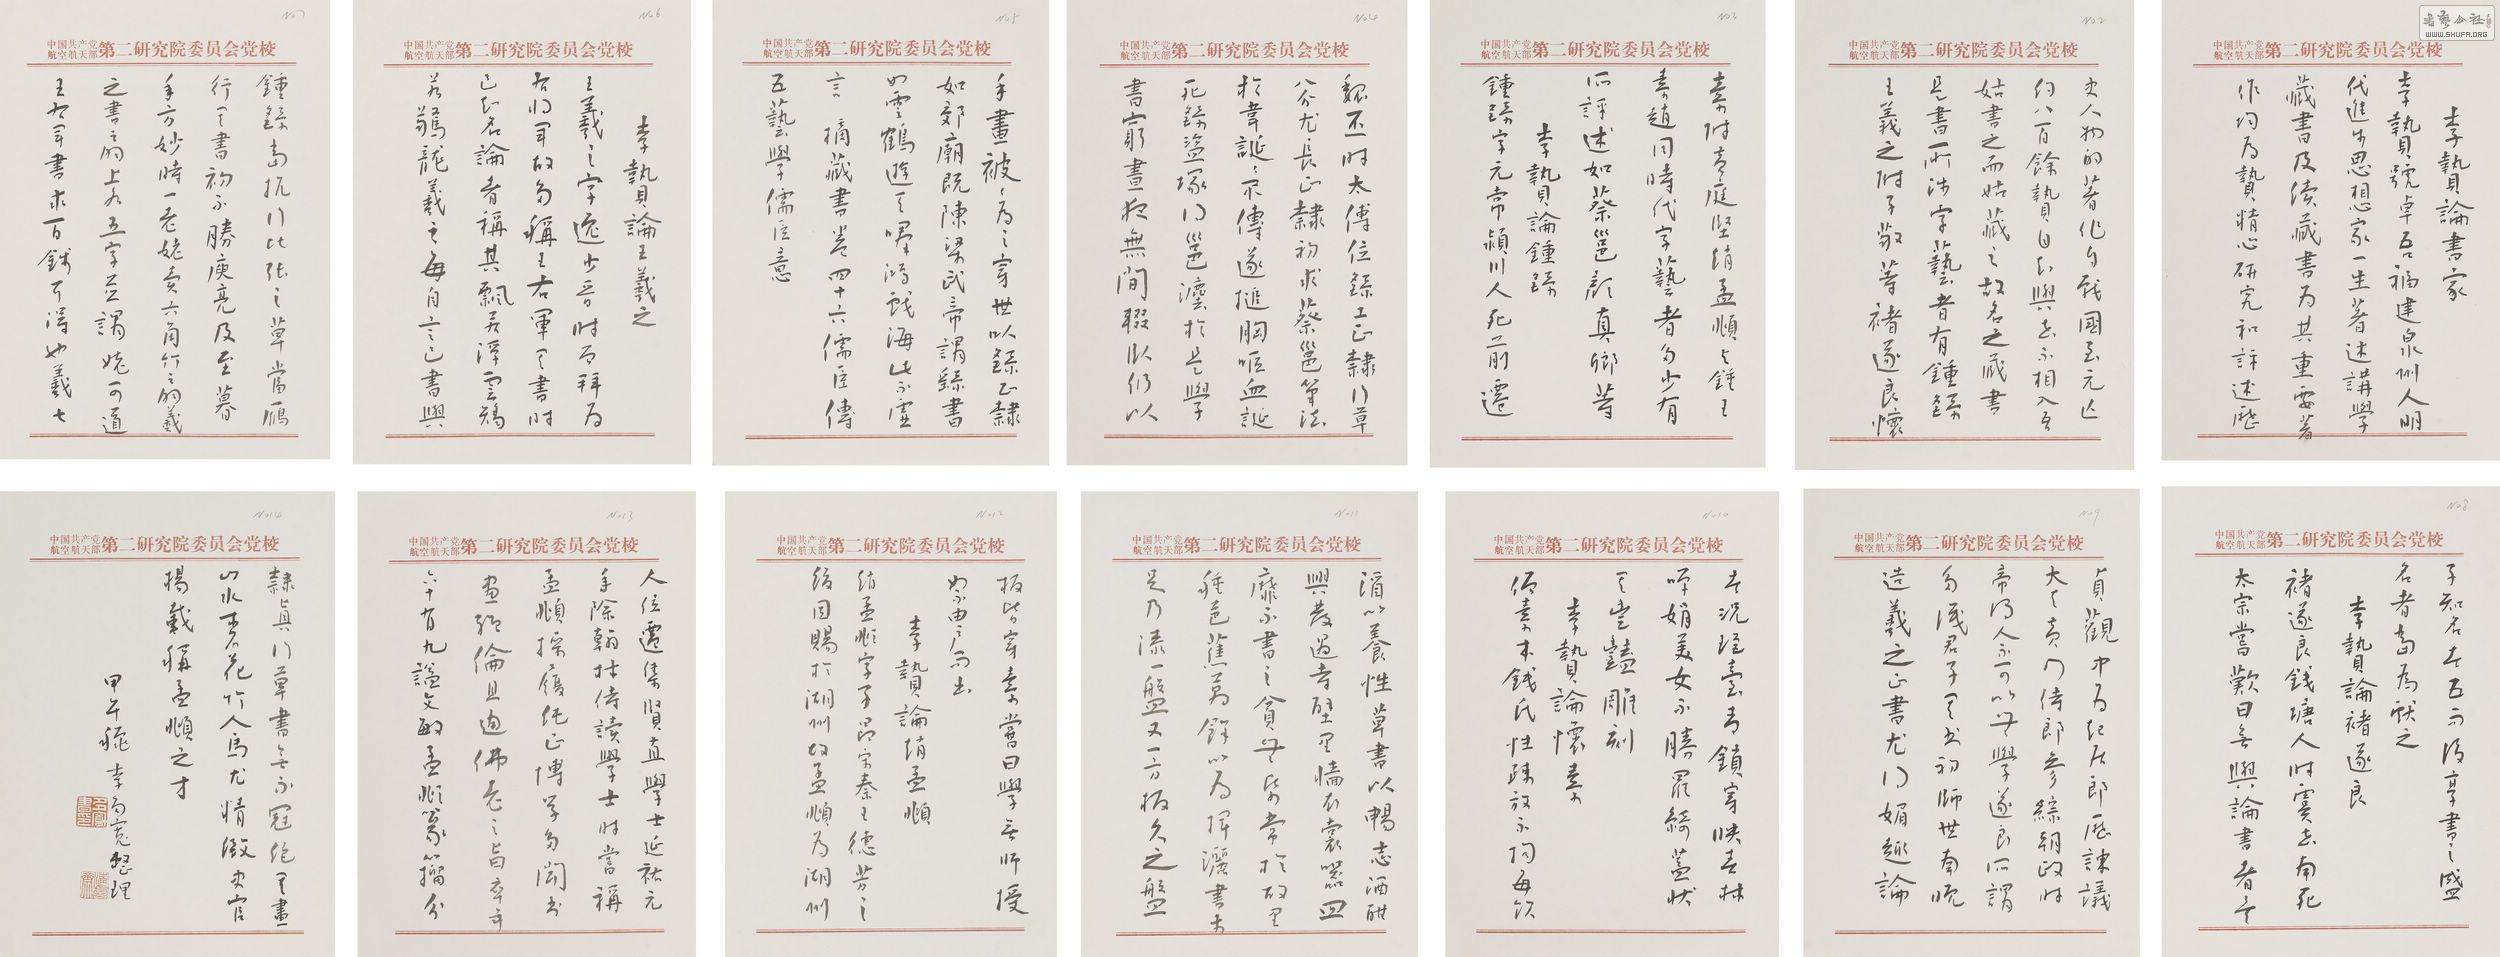 中国共产党
航空航天部
第二研究院委员会党校
李贽論書家
李贄號卓吾福建泉州人明
代進步思想家一生著述講學
藏書及续藏書为其重要著
作均为贄精心研究和評述歷
No2
中国共产党
航空航天部
第二研究院委员会党校
史人物的著作自戰國至元亡
约八百餘贄自知與世不相入吾
姑書之而姑藏之故名之藏書
是書所涉字藝者有鍾繇
王羲之附子敬等褚遂良懷
No3
中国共产党
航空航天部
第二研究院委员会党校
素附黄庭堅趙孟頫与鍾王
素趙同時代字藝者多少有
所評述如蔡邕顏真卿等
李贄論鍾繇
鍾繇字元常潁川人死前遷
No4
中国共产党
航空航天部
第二研究院委员会党校
魏丕时太傅位繇工正隸行草
八分尤長正隸初求蔡邕筆法
於韋誕誕不傳遂搥胸嘔血誕
死繇盜塚得邕法於是學
書窮晝夜無間輟臥仍以
No5
中国共产党
航空航天部
第二研究院委员会党校
手畫被被为之穿世以繇正隸
如郊廟既陳梁武帝謂繇書
如雲鶴遊天群鸿戲海此不虛
言 摘藏書卷四十六儒臣傳
五藝學儒臣意
No6
中国共产党
航空航天部
第二研究院委员会党校
李贄論王羲之
王羲之字逸少晋时为拜为
右将军故多稱王右軍其書时
已知名論者稱其飄若浮雲矯
若驚龍羲之每自言己書與
No7
中国共产党
航空航天部
第二研究院委员会党校
鍾繇当抗行比张之草當雁
行其書初不勝庾亮及至暮
年方妙時一老姥賣六角竹扇羲
之書扇上各五字並謂姥可道
王右军書求百錢可得也羲七
No8
中国共产党
航空航天部
第二研究院委员会党校
子知名者五而得享書之盛
名者当为献之
李贄論褚遂良
褚遂良錢塘人时虞世南死
太宗當歎曰無與論書者言
No9
中国共产党
航空航天部
第二研究院委员会党校
貞觀中为起居郎歷諫議
大夫黄门侍郎参綜朝政时
帝得人不可以無學遂良所謂
多識君子其书初師世南晚
造羲之正書尤得媚趣論
No10
中国共产党
航空航天部
第二研究院委员会党校
者況瑶臺青鎖穿映春林
嬋娟美女不勝羅綺蓋狀
其豐豔雕刻
李贄論懷素
懷素本錢氏性疎放不拘每飲
No11
中国共产党
航空航天部
第二研究院委员会党校
酒以養性草書以暢志酒酣
興發遇寺壁里墻衣裳器皿
靡不書之貧無紙常於故里
種芭蕉萬餘以为揮灑書未
足乃漆一盤又一方板久之盤
No12
中国共产党
航空航天部
第二研究院委员会党校
板皆穿素當曰學无師授
如不由户而出
李贄論趙孟頫
趙孟頫字子昂宋秦王德芳之
後因賜於湖州故孟頫为湖州
No13
中国共产党
航空航天部
第二研究院委员会党校
人位遷集賢直學士延祐元
年除翰林侍讀學士时當稱
孟頫操履纯正博学多闻书
画絕倫且通佛老之旨卒年
六十有九謚文敏孟頫篆籀分
No14
中国共产党
航空航天部
第二研究院委员会党校
隸真行草書无不冠绝其畫
山水木石花竹人馬尤精微史官
楊載稱孟頫之才
甲午 李多宽整理
WWW.SHUFA.ORG